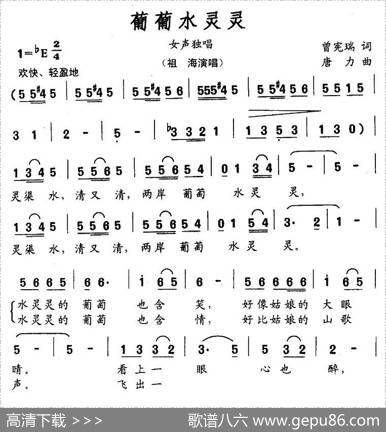 葡萄水灵灵
1=♭E 2/4
女声独唱
曾宪瑞 词
欢快、轻盈地
（祖 海演唱）
唐 力 曲
(5 5#45 5 5#45 5 5#456 555#45 5 5#456 5515
3 1 2 - 5 - ♭3321 1353 130)
1345 5565 5565 54 0134 5 - 5 -
灵渠 水，清又 清，两岸 葡萄 水 灵 灵，
1345 5565 5565 54 0121 54 3· 2 1 -
灵渠 水，清又 清，两岸 葡萄 水 灵 灵。
5665 66· i 65 5 - 5665 3213 1 65
水灵灵的 葡萄 也 含 笑， 好像姑娘的 大 眼
水灵灵的 葡萄 也 含 情， 好比姑娘的 山 歌
5 - 5 - 1 3 32 3· 2 132 2 -
睛。 看 上 一 眼 心 也 醉，
声。 飞 出 一
高清下载 >>>
歌谱八六 www.gepu86.com